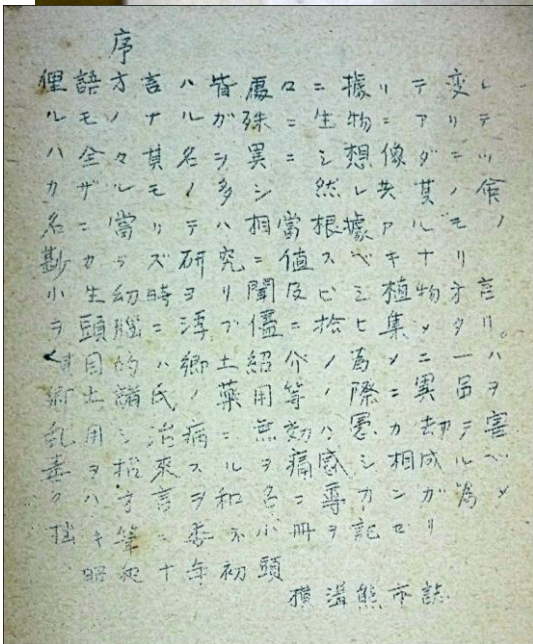 序
俚語方言ハ皆處ニ據リテ変
ルモノナルガ殊ニ生物ニアリテ
ハ全ク其名ヲ異ニシ想像ダニツ
カザルモノ多シ然レ共其ノ餘
名ニ當リテハ相當根據アルモノ
勘カラズ研究ニ値スベキナリ
小生幼時ヨリ聞及ビシ植物方言
ヲ頭腦ニ浮ブ儘ニ拾ヒ集メタリ。
其目的ハ郷土紹介ノ為メニ一ハ
郷出諸氏ノ藥用等ノ際ニ異
乱用シ治病ニ無効ノ カ却テ害
毒ヲ招来スルヲ痛感シ相成ルベ
ク方言ヲ和名ニ尊カンガ為メ
拙キ筆ニ委ネ小冊ヲ記セリ
昭和十年初頭
横溝熊市誌